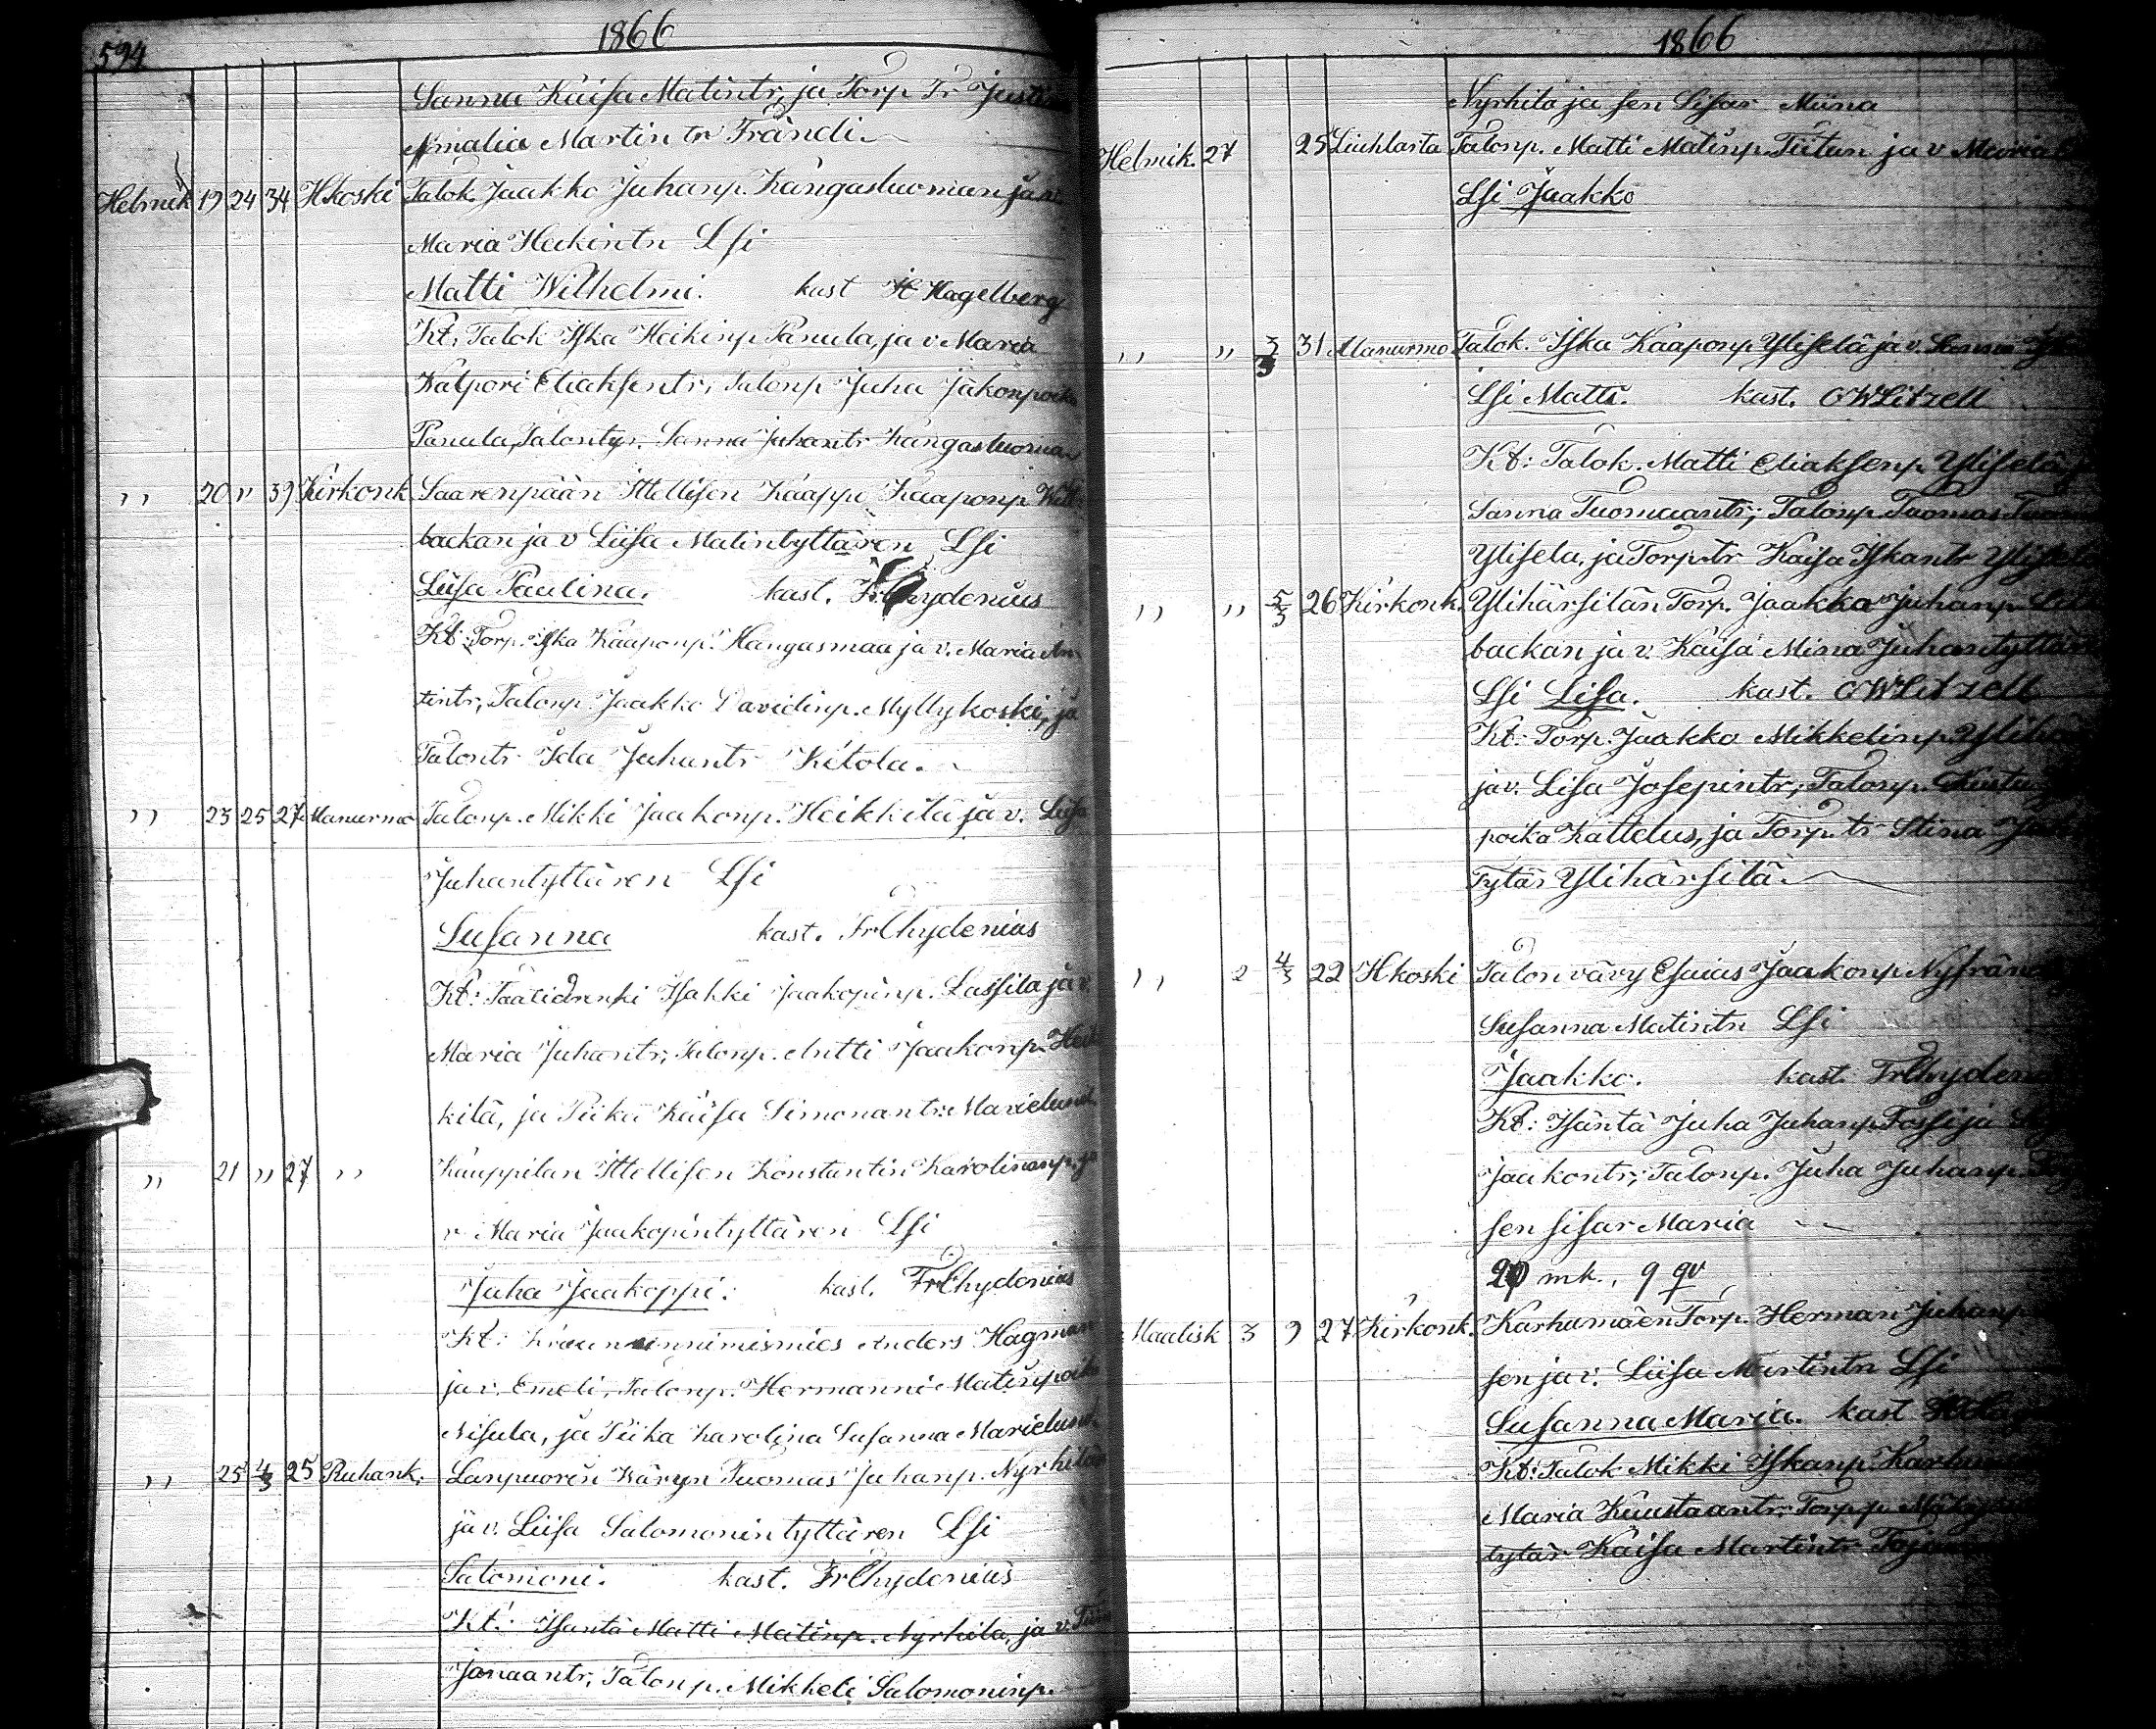 594
1866
Sanna Kaisa Matintr, ja Torp Tr Justina
Amalia Martin tr Frändi
Helmik 19 24 34 Hkoski Talok. Jaakko Juhanp. Kangasluoman ja v
Maria Heikintn Lsi
Matti Wilhelmi. kast H Hagelberg
Kt: Talok Iska Heikinp Panula, ja v Maria
Walpori Eliaksentr, Talonp Juha Jakonpoika
Panula, Talontyr. Sanna Juhantr Kangasluoma
,, 20 ,, 39 Kirkonk Saarenpään Itellisen Kaappo Kaaponp
backan ja v Liisa Matintyttären Lsi
Liisa Paulina. kast. Fr Chydenius
Kt: Torp. Iska Kaaponp. Hangasmaa ja v. Maria An-
tintr, Talonp. Jaakko Davidinp. Myllykoski, ja
Talontr Ida Juhantr Ketola.
,, 23 25 27 Manurmo Talonp. Mikki Jaakonp. Heikkilä ja v. Liisa
Juhantyttären Lsi
Susanna kast. Fr Chydenius
Kt: Isakki Jaakopinp. Lassila ja v.
Maria Juhantr, Talonp. Antti Jaakonp. Heik
kilä, ja Piika Kaisa Simonantr. Marielund
,, 21 ,, 27 ,, Kauppilan Itellisen Konstantin Karolinanp. ja
v Maria Jaakopintyttären Lsi
Juha Jaakoppi. kast. Fr Chydenius
Kt: Kruununnimismies Anders Hagman
ja v. Emeli, Talonp. Hermanni Matinpoika
Nisula, ja Piika Karolina Susanna Marielund
,, 25 4/3 25 Ruhank. Lanpuorin Wävyn Tuomas Juhanp. Nyrhilän
ja v. Liisa Salomonintyttären Lsi
Salomoni. kast. Fr Chydenius
Kt: Isäntä Matti Matinp. Nyrhila, ja v.
Jonaantr, Talonp. Mikkeli Salomoninp.
1866
Nyrhilä ja sen Sisar Miina
Helmik. 27 25 Liuhlasta Talonp. Matti Matinp. Tiitun ja v Maria
Lsi Jaakko
,, ,, 3/3 31 Manurmo Talok. Iska Kaaponp Yliselä ja v. Sanna
Lsi Matti. kast. O W Litzell
Kt: Talok. Matti Eliaksenp. Yliselä
Sanna Tuomaantr; Talonp. Tuomas
Ylisela, ja Torp.tr Kaisa Iskantr Ylisela
,, ,, 5/3 26 Kirkonk. Ylihärsilän Torp. Jaakko Juhanp
backan ja v. Kaisa Mina Juhantyttären
Lsi Lisa. kast. O W Litzell
Kt: Torp. Jaakko Mikkelinp.
ja v. Lisa Josepintr, Talonp.
poika Kattelus, ja Torp.tr Stina
Tytär Ylihärsilä.
,, 2 4/3 22 Hkoski Talon vävy Esaias Jaakonp Nyfränd
Susanna Matintn Lsi
Jaakko. kast. Fr Chydenius
Kt: Isäntä Juha Juhanp. Fossi ja
Jaakontr; Talonp. Juha Juhanp.
sen sisar Maria
mk., 9 qv
Maalisk 3 9 27 Kirkonk. Karhumäen Torp. Herman Juhanp
sen ja v. Liisa Martintn Lsi
Susanna Maria. kast
Kt: Talok Mikki Iskanp. Karhu
Maria Kuustaantr, Torp.p.
tytär Kaisa Martintr